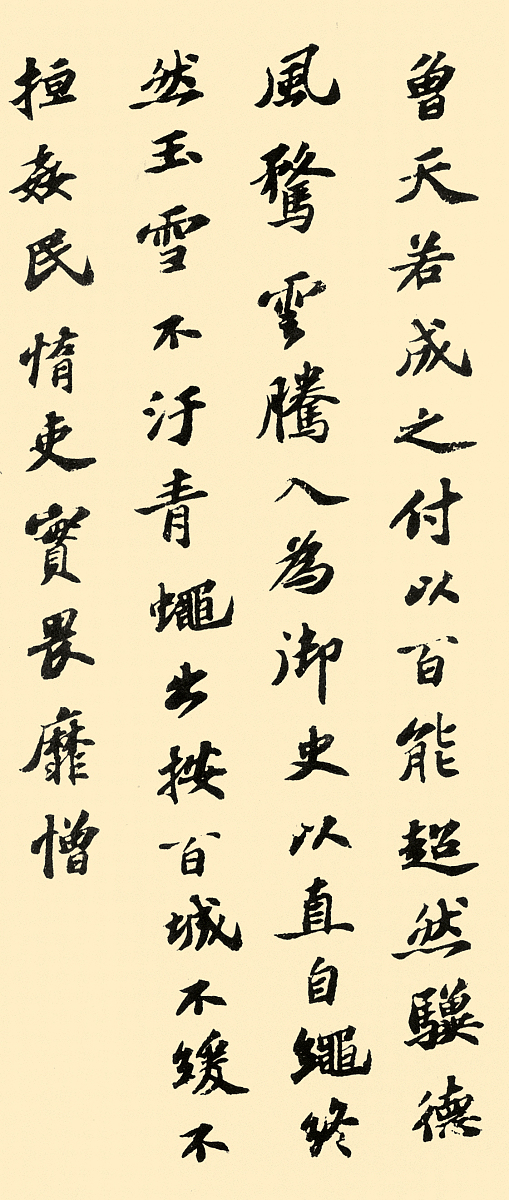 曾天若成之付以百能超然驥德
風騖雲騰入為御史以直自繩終
然玉雪不汙青蠅出按百城不緩不
抯姦民惰吏實畏靡憎